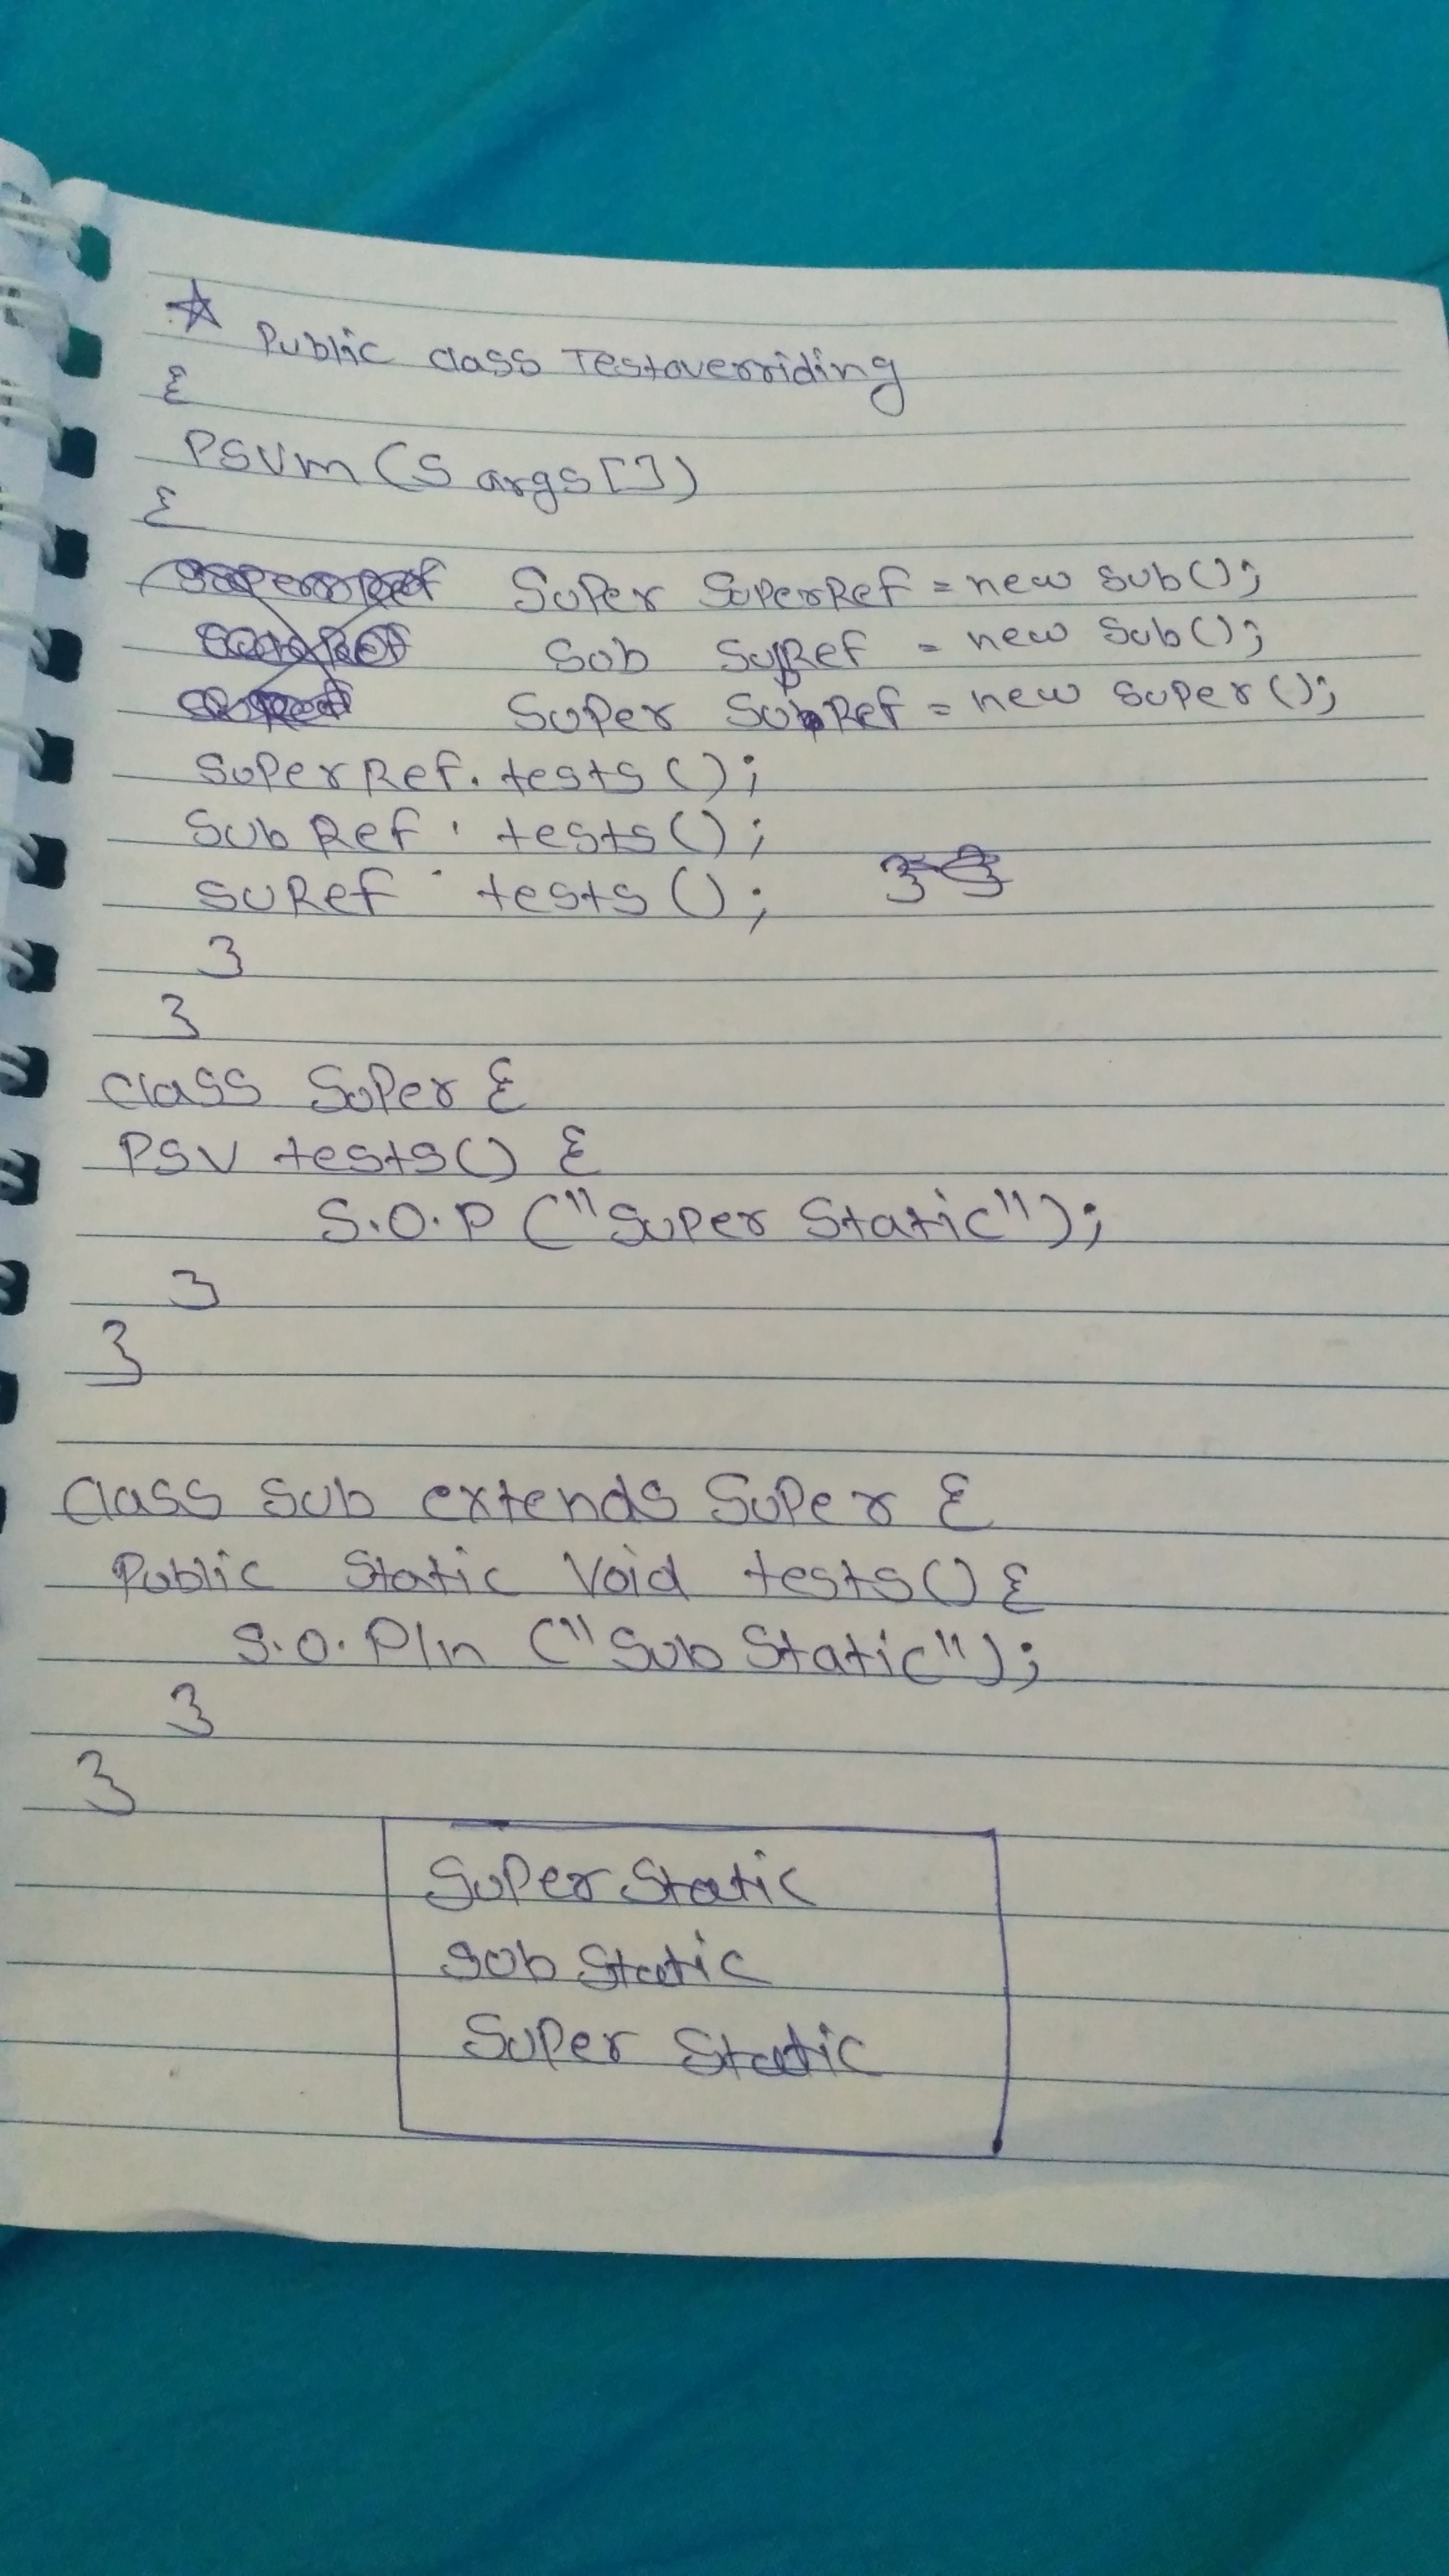 ☆ Public class Testoverriding
{
PSVm (S args[])
{
Super SuperRef = new Sub();
Sub SubRef = new Sub();
Super SuRef = new Super();
SuperRef. tests ();
Sub Ref . tests();
SuRef . tests ();
}
}
class Super {
PSV tests() {
S.O.P ("Super Static");
}
}
Class Sub extends Super {
Public Static Void tests() {
S.O.Pln ("Sub Static");
}
}
Super Static
Sub Static
Super Static